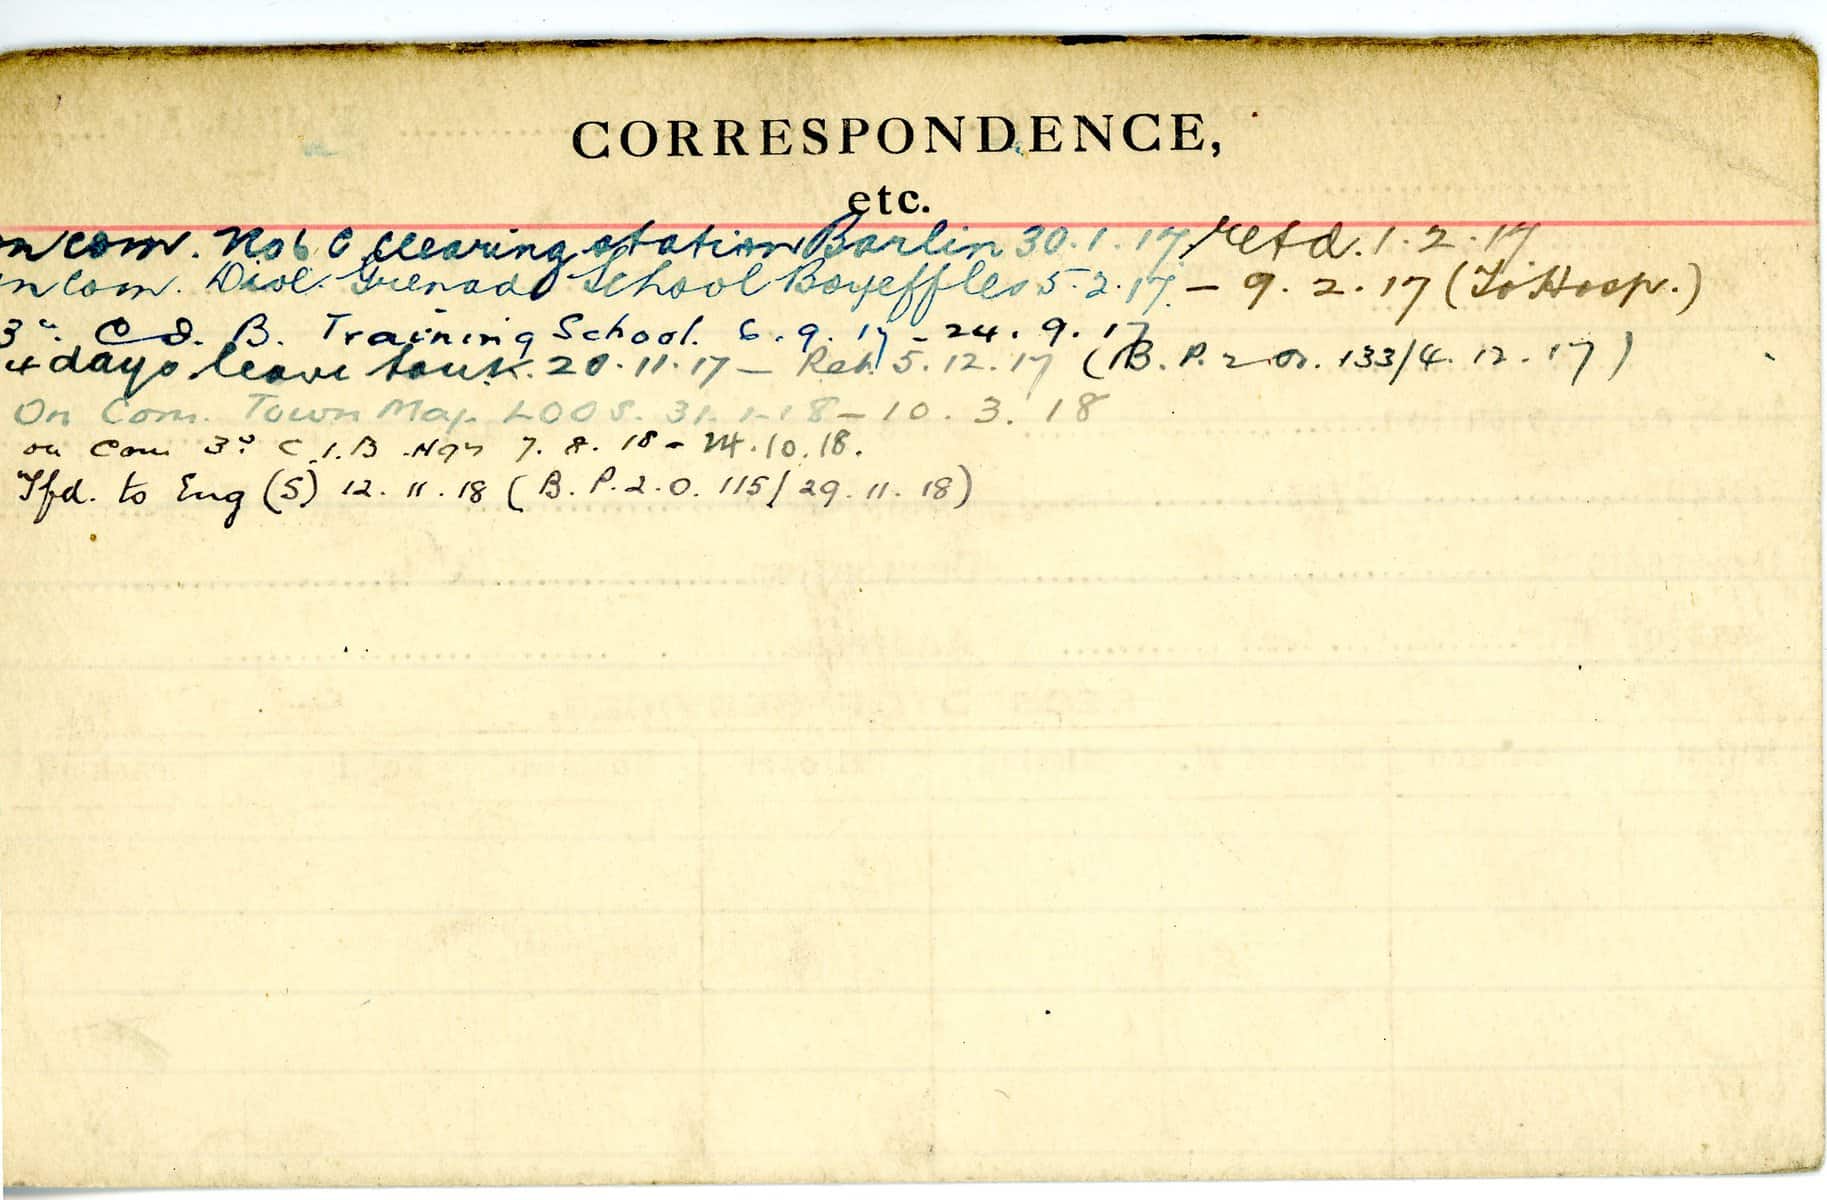 CORRESPONDENCE,
etc.
n com. No 6 C clearing station Barlin 30.1.17. retd. 1.2.17
n Com. Divl. Grenade School Boyeffles 5.2.17. – 9.2.17 (To Hosp.)
3rd. C.I.B. Training School. 6.9.17 - 24.9.17
4 days leave to U.K. 20.11.17 – Ret. 5.12.17 (B.P. 2 Or. 133/4.12.17)
On Com. Town Maj. LOOS. 31.1.18 – 10.3.18
on Com 3rd C.I.B. Hqs 7.8.18 - 24.10.18.
Tfd. to Eng (S) 12.11.18 (B.P.2.O. 115/29.11.18)